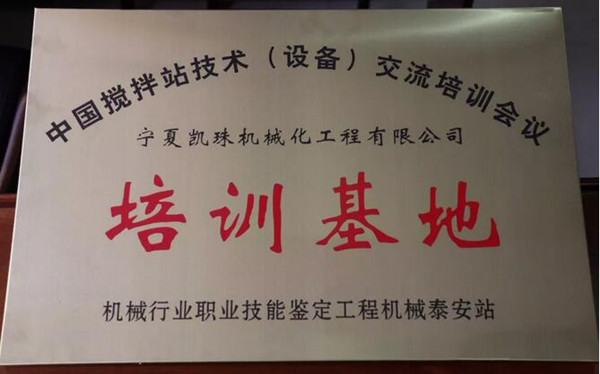 中国搅拌站技术（设备）交流培训会议
宁夏凯珠机械化工程有限公司
培训基地
机械行业职业技能鉴定工程机械泰安站